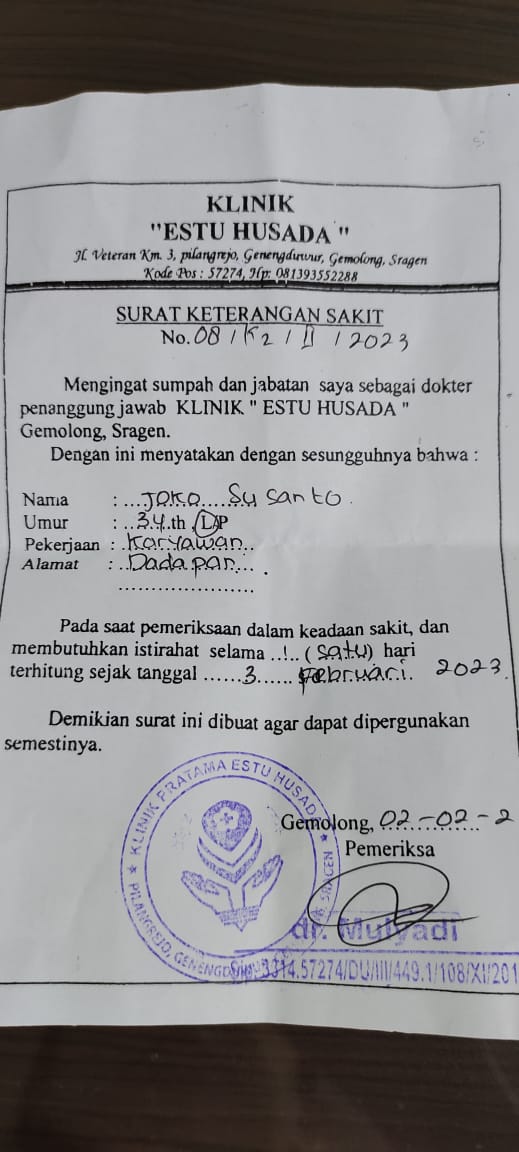 KLINIK
"ESTU HUSADA "
Jl. Veteran Km. 3, pilangrejo, Genengduwur, Gemolong, Sragen
Kode Pos : 57274, Hp: 081393552288
SURAT KETERANGAN SAKIT
No. 08 / K2 / II / 2023
Mengingat sumpah dan jabatan saya sebagai dokter
penanggung jawab KLINIK " ESTU HUSADA "
Gemolong, Sragen.
Dengan ini menyatakan dengan sesungguhnya bahwa :
Nama : ...JOKO....Susanto.
Umur : ..34.th .L/P
Pekerjaan : .Karyawan..
Alamat : ..Dadapan... .
......................
Pada saat pemeriksaan dalam keadaan sakit, dan
membutuhkan istirahat selama ..1.. (satu) hari
terhitung sejak tanggal ......3...... Februari. 2023.
Demikian surat ini dibuat agar dapat dipergunakan
semestinya.
KLINIK PRATAMA ESTU HUSADA
PILANGREJO, SRAGEN
Gemolong, 02-02-2
Pemeriksa
dr. Mulyadi
3314.57274/DU/III/449.1/108/XI/201